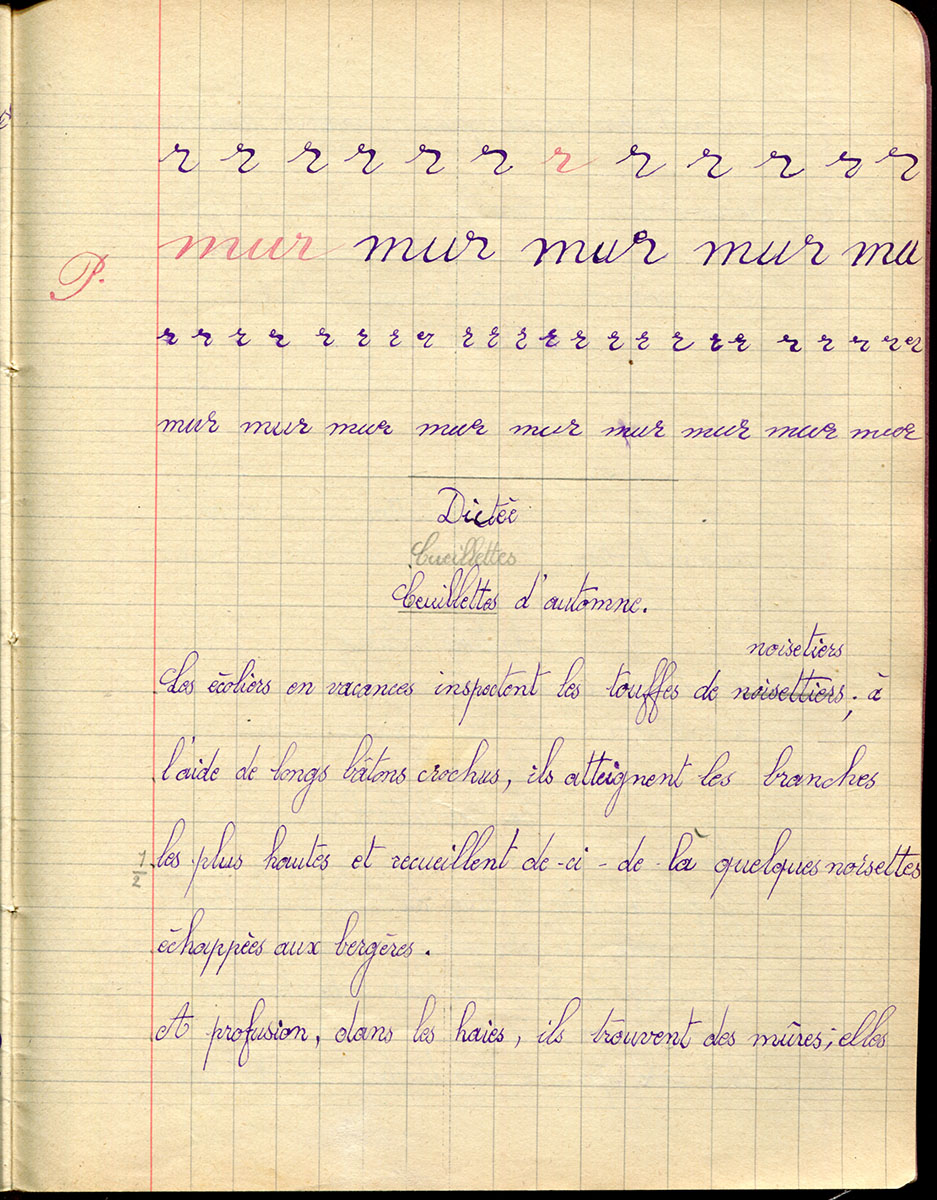 r r r r r r r r r r r r
P. mur mur mur mur mu
r r r r r r r r r r r r r r r r r r r r r r r
mur mur mur mur mur mur mur mur mur
Dictée
Cueillettes
Ceuillettes d'automne.
noisetiers
Les écoliers en vacances inspectent les touffes de noisettiers; à
l'aide de longs bâtons crochus, ils atteignent les branches
1/2 les plus hautes et recueillent de-ci-de-là quelques noisettes
échappées aux bergères.
A profusion, dans les haies, ils trouvent des mûres; elles